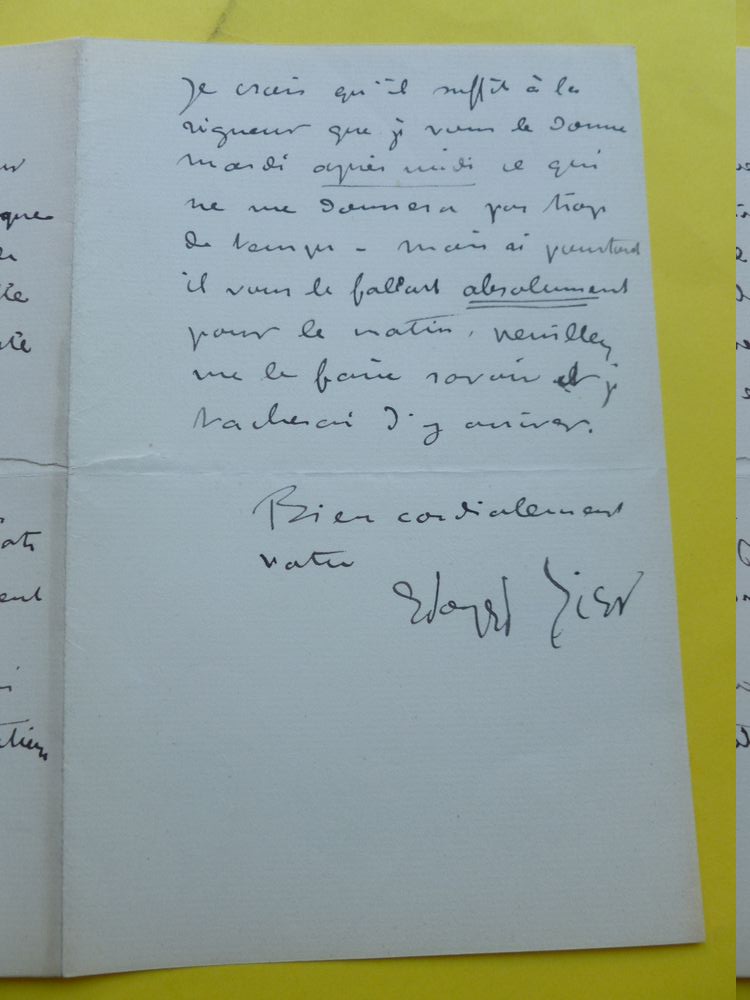 Je crois qu'il suffit à la
rigueur que je vous le donne
mardi après midi ce qui
ne me donnera pas trop
de temps - mais si pourtant
il vous le fallait absolument
pour le matin, veuillez
me le faire savoir et je
tacherai d'y arriver.
Bien cordialement
votre
Edouard Zier